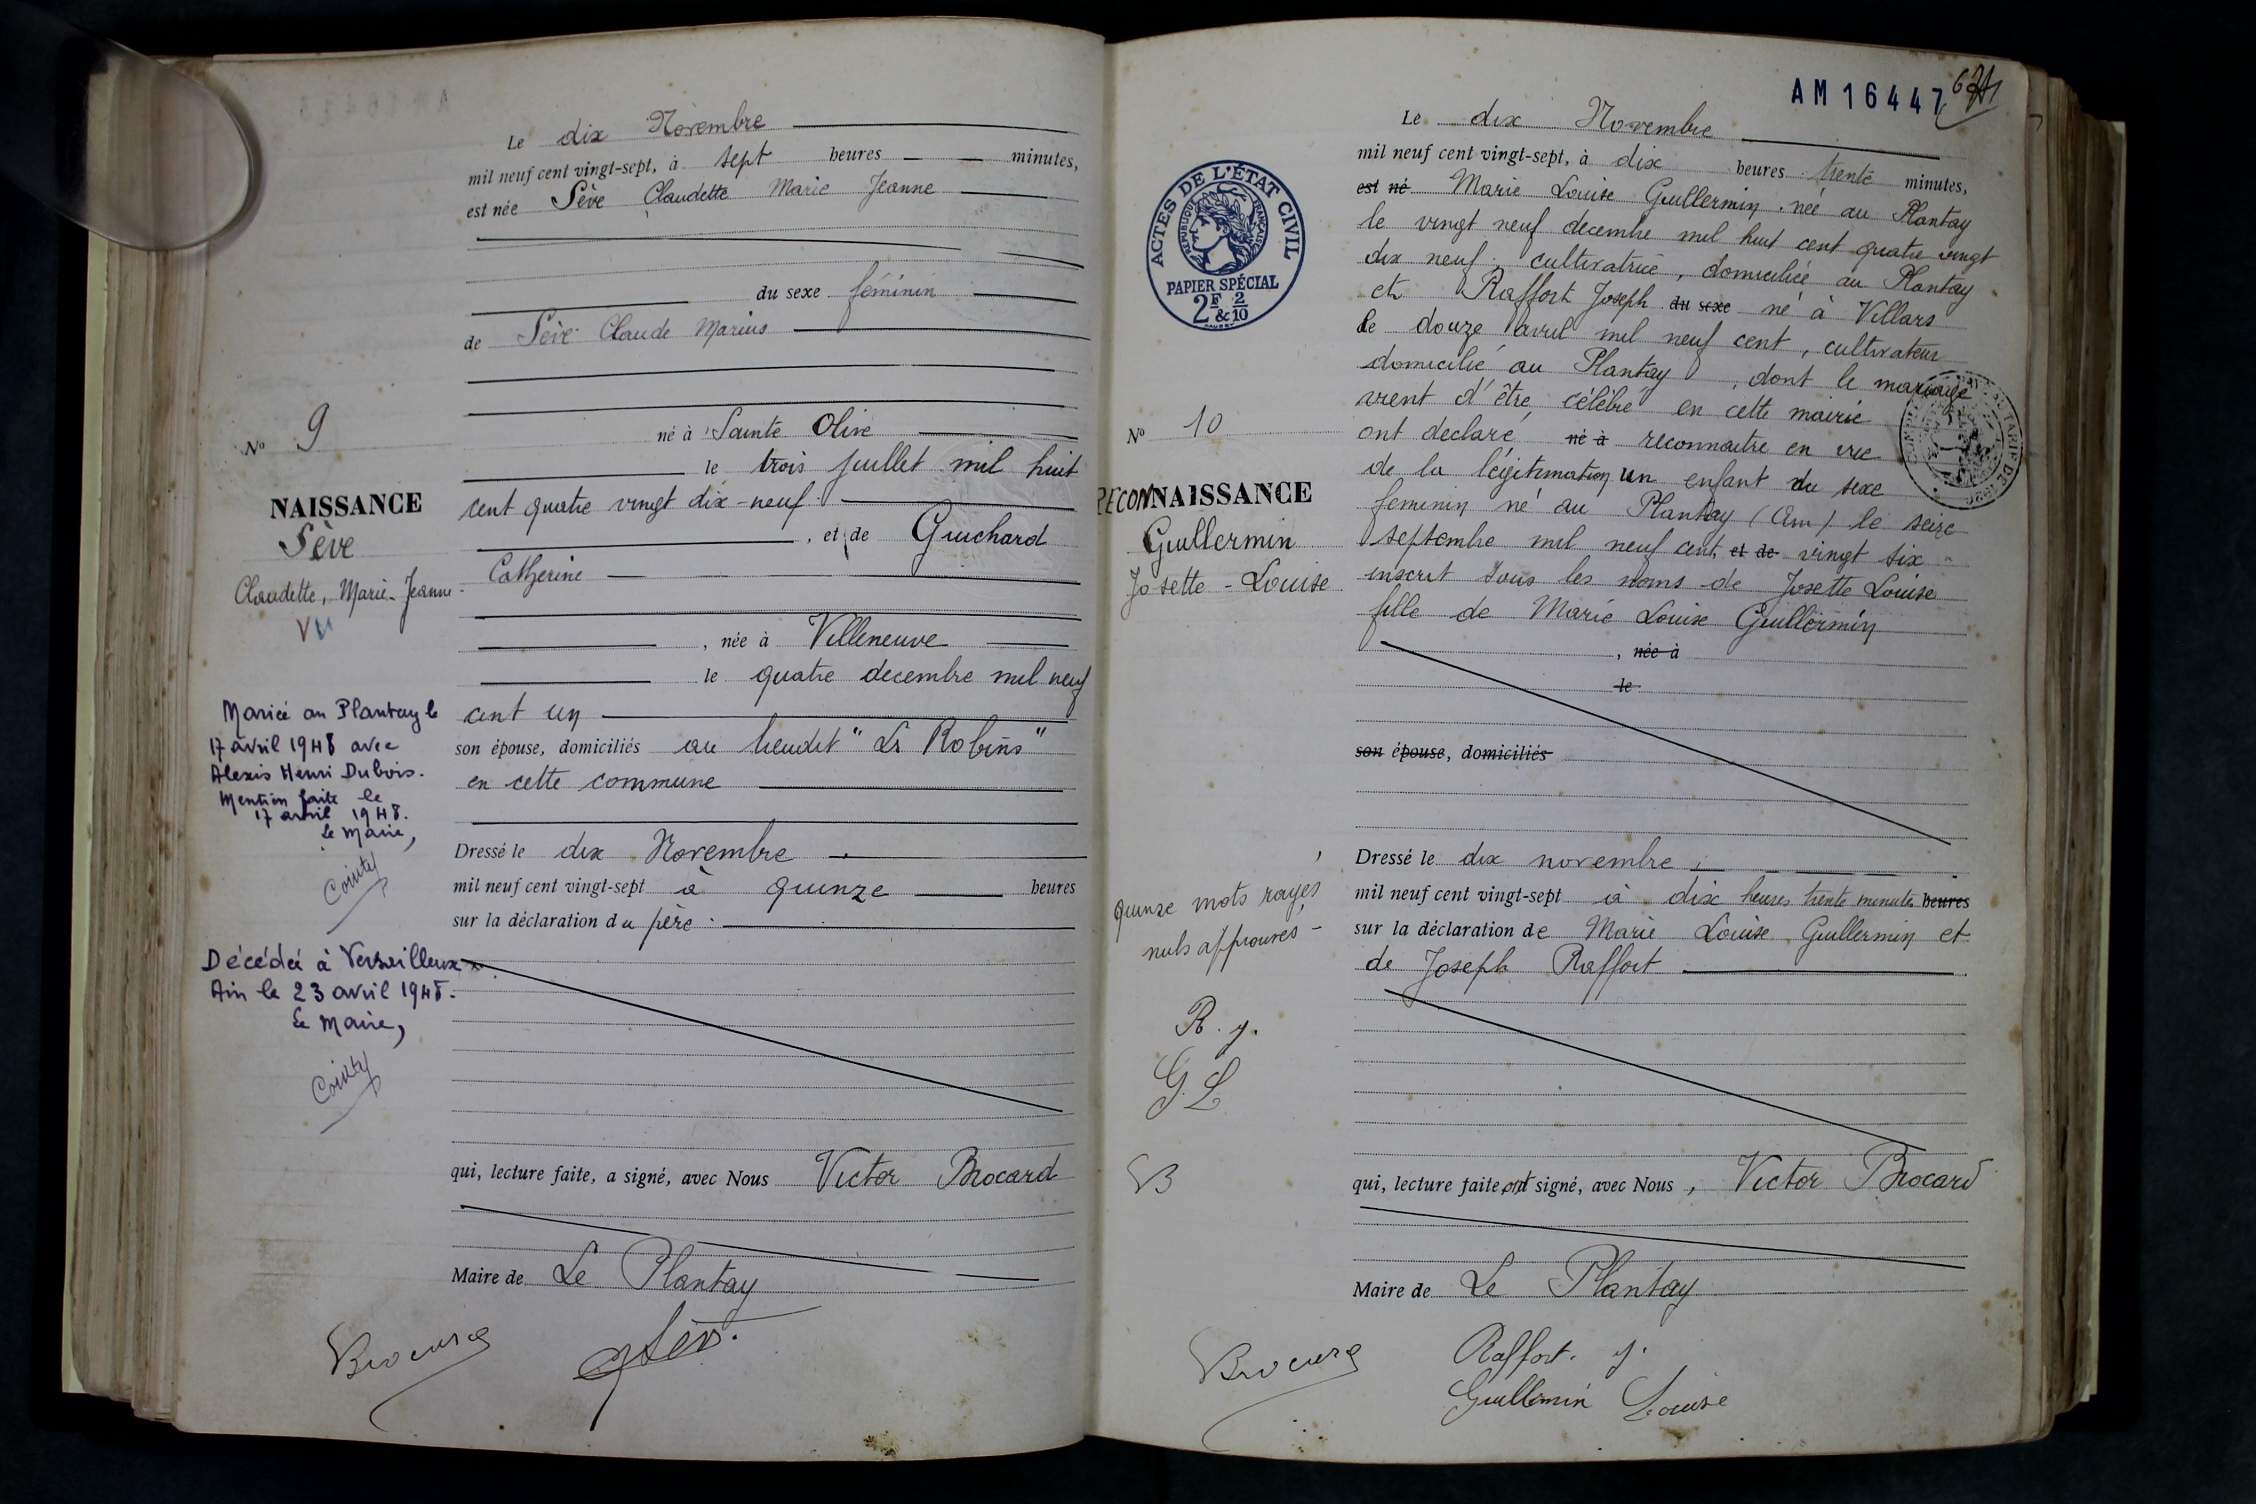 Le dix Novembre
mil neuf cent vingt-sept, à sept heures minutes,
est née Sève Claudette Marie Jeanne
du sexe féminin
de Sève Claude Marius
né à Sainte Olive
le trois juillet mil huit
cent quatre vingt dix-neuf
, et de Guichard
Catherine
, née à Villeneuve
le quatre decembre mil neuf
cent un
son épouse, domiciliés au lieudit "Ls Robins"
en cette commune
Dressé le dix Novembre
mil neuf cent vingt-sept à quinze heures
sur la déclaration du père
qui, lecture faite, a signé, avec Nous Victor Brocard
Maire de Le Plantay
Brocard
No 9
NAISSANCE
Sève
Claudette, Marie-Jeanne
VU
Mariée au Plantay le
17 avril 1948 avec
Alexis Henri Dubois.
Mention faite le
17 avril 1948.
Le Maire,
Décédée à Versailleux
Ain le 23 avril 1948.
Le Maire,
AM16447
ACTES DE L'ÉTAT CIVIL
RÉPUBLIQUE FRANÇAISE
PAPIER SPÉCIAL
2F & 2/10
Le dix Novembre
mil neuf cent vingt-sept, à dix heures trente minutes,
est né Marie Louise Guillermin, née au Plantay
le vingt neuf decembre mil huit cent quatre vingt
dix neuf, cultivatrice, domiciliée au Plantay
et Raffort Joseph du sexe né à Villars
le douze avril mil neuf cent, cultivateur
domicilié au Plantay, dont le mariage
vient d'être célèbré en cette mairie
ont declaré né à reconnaitre en vue
de la légitimation un enfant du sexe
feminin né au Plantay (Ain) le seize
septembre mil neuf cent et de vingt six
inscrit sous les noms de Josette Louise
fille de Marie Louise Guillermin
, née à
le
son épouse, domiciliés
Dressé le dix novembre
mil neuf cent vingt-sept à dix heures trente minutes heures
sur la déclaration de Marie Louise Guillermin et
de Joseph Raffort
qui, lecture faite, ont signé, avec Nous, Victor Brocard
Maire de Le Plantay
Brocard
Raffort. J.
Guillemin Louise
No 10
RECONNAISSANCE
Guillermin
Josette-Louise
quinze mots rayés
nuls approuvés
R. J.
G. L
VB